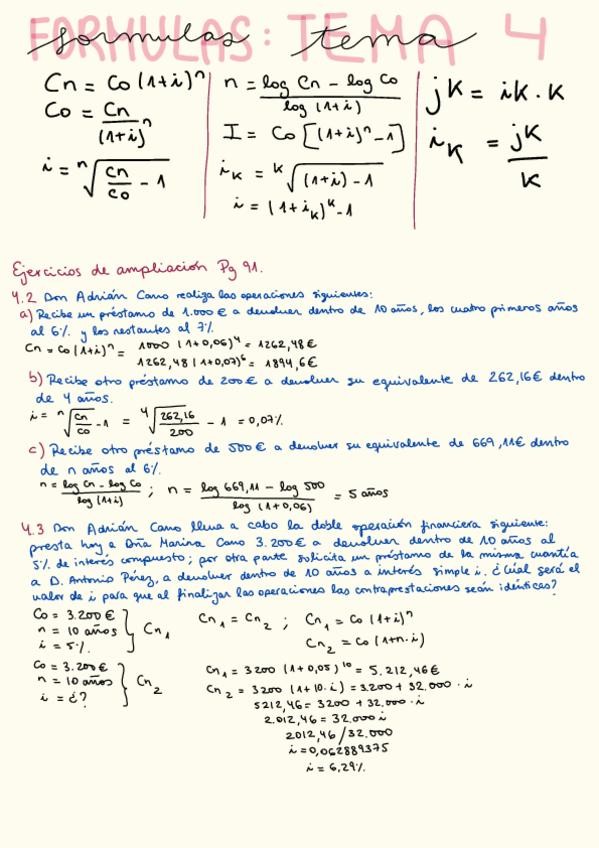 FORMULAS: TEMA 4
formulas tema
Cn = Co (1+i)^n
Co = Cn / (1+i)^n
i = ^n√(Cn/Co) - 1
n = (log Cn - log Co) / log (1+i)
I = Co [(1+i)^n - 1]
i_K = ^K√(1+i) - 1
i = (1+i_K)^K - 1
jK = iK · K
i_K = jK / K
Ejercicios de ampliación Pg 91.
4.2 Don Adrián Cano realiza las operaciones siguientes:
a) Recibe un préstamo de 1.000 € a devolver dentro de 10 años, los cuatro primeros años
al 6% y los restantes al 7%
Cn = Co (1+i)^n = 1000 (1+0,06)^4 = 1262,48 €
1262,48 (1+0,07)^6 = 1894,6 €
b) Recibe otro préstamo de 200 € a devolver su equivalente de 262,16 € dentro
de 4 años.
i = ^n√(Cn/Co) - 1 = ^4√(262,16/200) - 1 = 0,07%
c) Recibe otro préstamo de 500 € a devolver su equivalente de 669,11 € dentro
de n años al 6%.
n = (log Cn - log Co) / log (1+i) ; n = (log 669,11 - log 500) / log (1+0,06) = 5 años
4.3 Don Adrián Cano lleva a cabo la doble operación financiera siguiente:
presta hoy a Dña Marina Cano 3.200 € a devolver dentro de 10 años al
5% de interés compuesto; por otra parte solicita un préstamo de la misma cuantía
a D. Antonio Pérez, a devolver dentro de 10 años a interés simple i. ¿Cuál será el
valor de i para que al finalizar las operaciones las contraprestaciones sean idénticas?
Co = 3.200 €
n = 10 años
i = 5%
} Cn1
Cn1 = Cn2 ; Cn1 = Co (1+i)^n
Cn2 = Co (1+n·i)
Co = 3.200 €
n = 10 años
i = ¿?
} Cn2
Cn1 = 3200 (1+0,05)^10 = 5.212,46 €
Cn2 = 3200 (1+10·i) = 3200 + 32.000 · i
5212,46 = 3200 + 32.000 · i
2.012,46 = 32.000 i
2012,46 / 32.000
i = 0,062889375
i = 6,29%